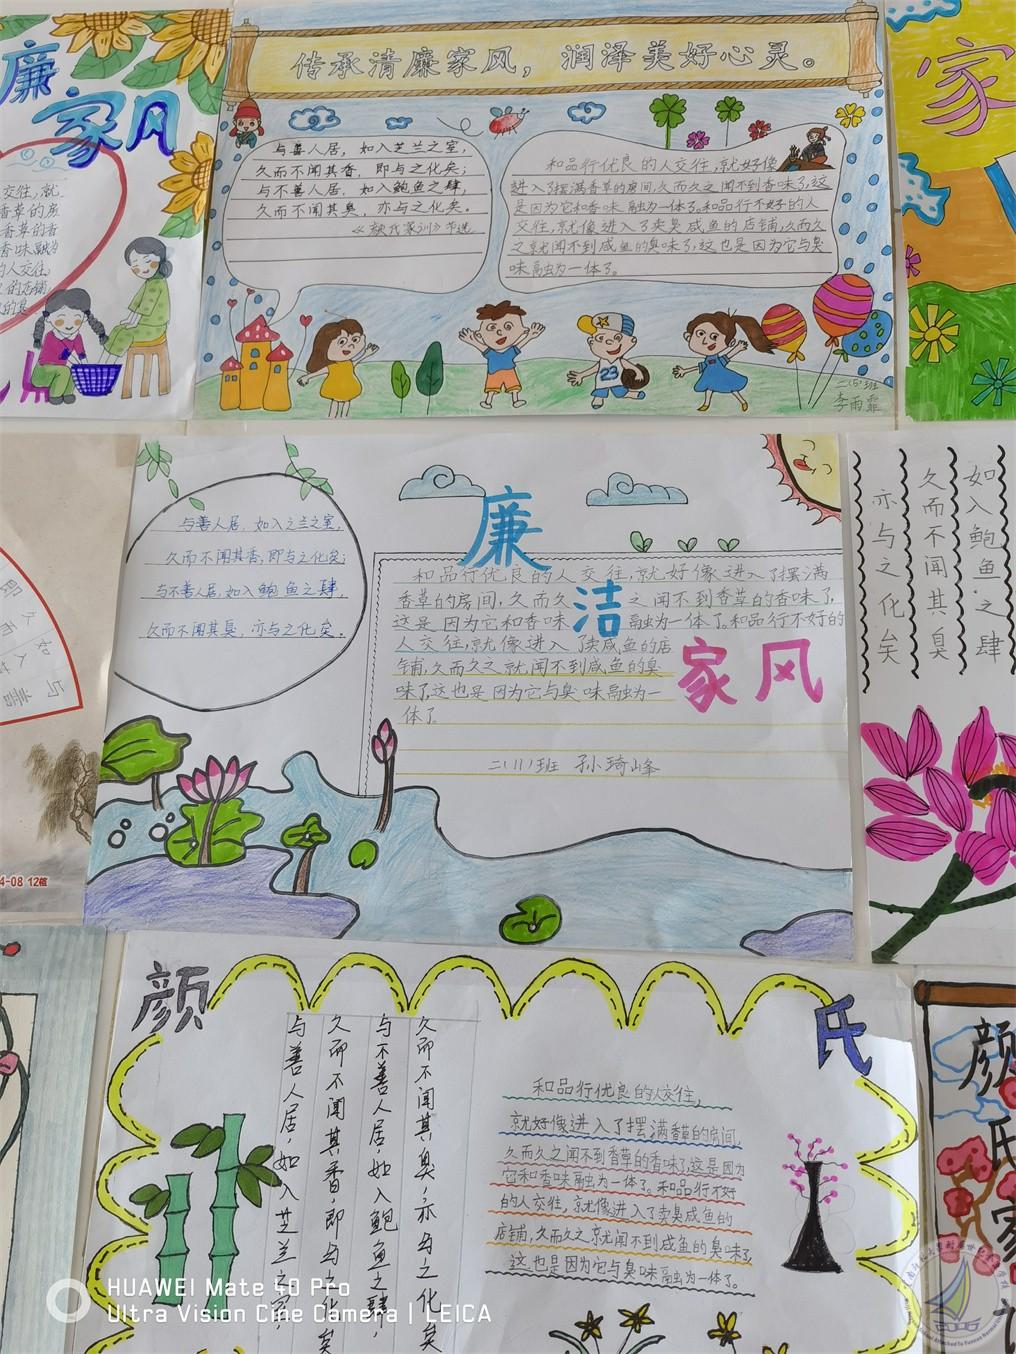 廉
家风
传承清廉家风，润泽美好心灵。
与善人居，如入芝兰之室，
久而不闻其香，即与之化矣；
与不善人居，如入鲍鱼之肆，
久而不闻其臭，亦与之化矣。
和品行优良的人交往，就好像
进入了摆满香草的房间，久而久之闻不到香味了，这
是因为它和香味融为一体了。和品行不好的人
交往，就像进入了卖臭咸鱼的店铺，久而久
之就闻不到咸鱼的臭味了，这也是因为它与臭
味融为一体了。
23
二(5)班
李雨霏
家
与善人居，如入之兰之室，
久而不闻其香，即与之化矣；
与不善人居，如入鲍鱼之肆，
久而不闻其臭，亦与之化矣。
廉
洁
家风
和品行优良的人交往，就好像进入了摆满
香草的房间，久而久之闻不到香草的香味了，
这是因为它和香味融为一体了。和品行不好的
人交往，就像进入了卖咸鱼的店
铺，久而久之就闻不到咸鱼的臭
味了，这也是因为它与臭味融为一
体了
二(11)班 孙琦峰
如入鲍鱼之肆
久而不闻其臭
亦与之化矣
4-08 12幅
颜
氏
与善人居，如入芝兰之室，
久而不闻其香，即与之化矣
与不善人居，如入鲍鱼之肆，
久而不闻其臭，亦与之化矣
和品行优良的人交往，
就好像进入了摆满香草的房间，
久而久之闻不到香草的香味了，这是因为
它和香味融为一体了。和品行不好
的人交往，就像进入了卖臭咸鱼的
店铺，久而久之就闻不到咸鱼的臭味了，
这也是因为它与臭味融为一体了。
颜
氏
家
HUAWEI Mate 40 Pro
Ultra Vision Cine Camera | LEICA